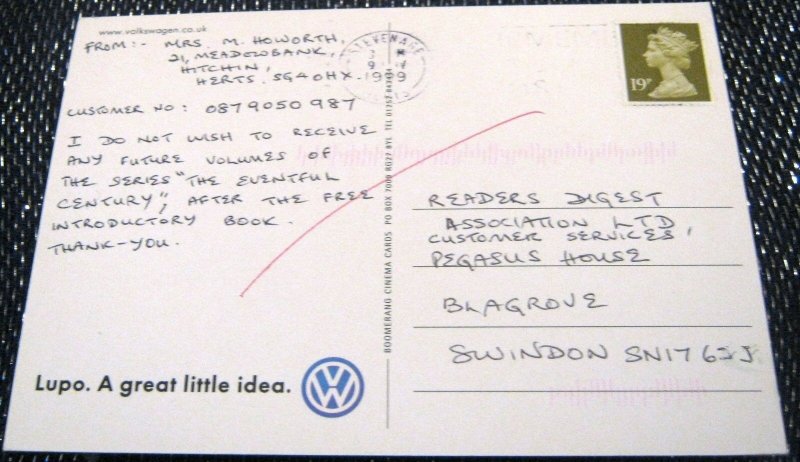 www.volkswagen.co.uk
FROM:- MRS. M. HOWORTH,
21, MEADOWBANK,
HITCHIN,
HERTS. SG4 0HX.
CUSTOMER NO: 0879050987
I DO NOT WISH TO RECEIVE
ANY FUTURE VOLUMES OF
THE SERIES "THE EVENTFUL
CENTURY", AFTER THE FREE
INTRODUCTORY BOOK.
THANK-YOU.
Lupo. A great little idea.
VW
BOOMERANG CINEMA CARDS PO BOX 7000 RG27 8YL TEL 01252
STEVENAGE
1999
19P
READERS DIGEST
ASSOCIATION LTD
CUSTOMER SERVICES,
PEGASUS HOUSE
BLAGROVE
SWINDON SN17